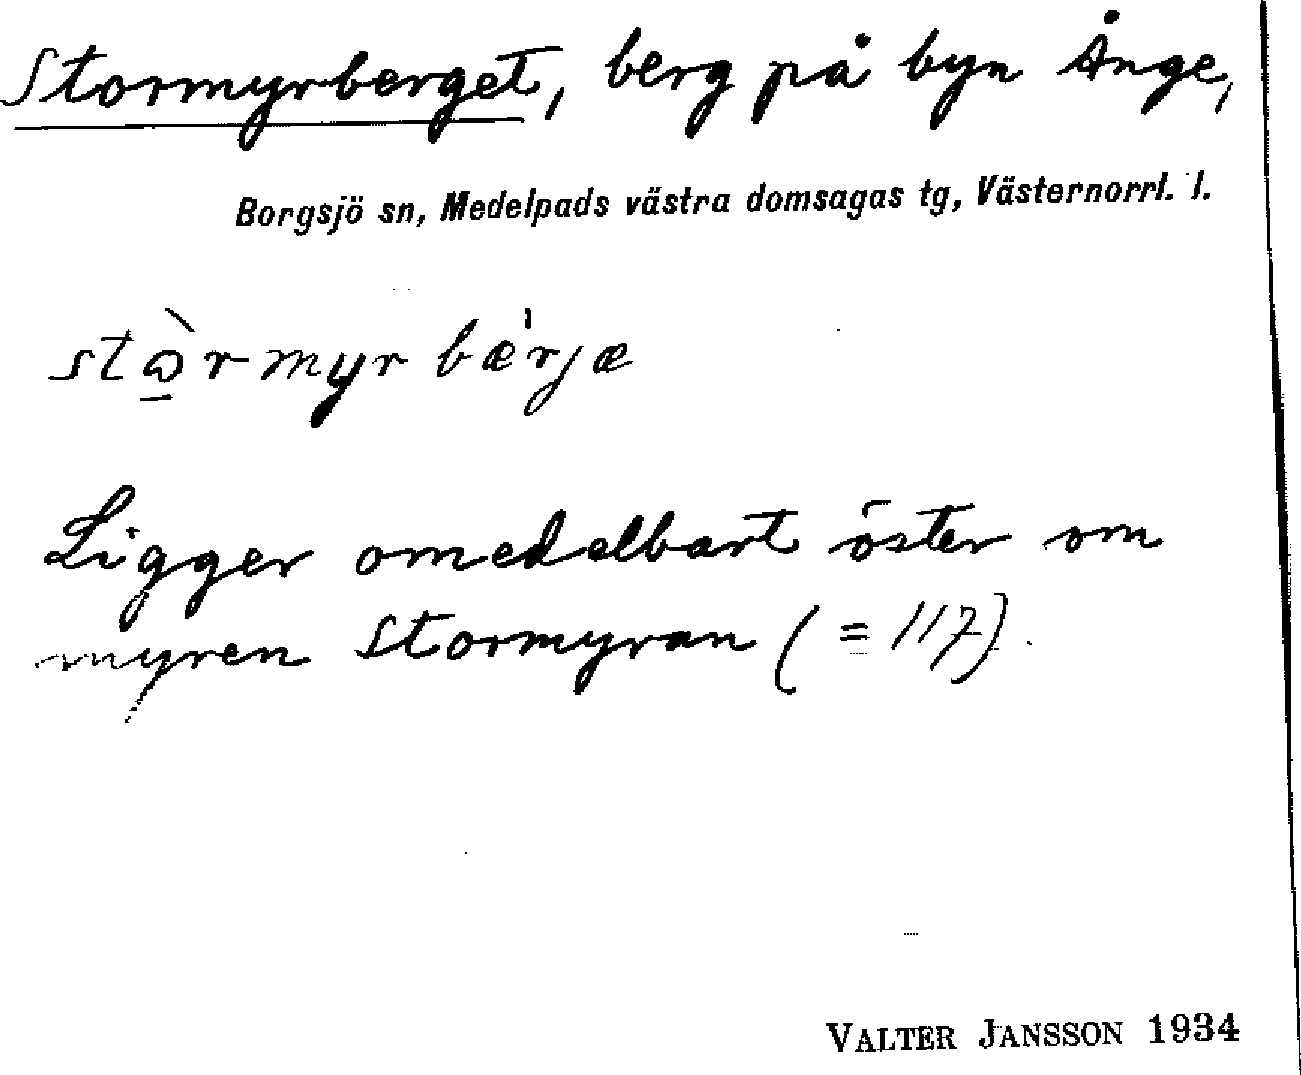 Stormyrberget, berg på byn Ånge,
Borgsjö sn, Medelpads västra domsagas tg, Västernorrl. l.
Ligger omedelbart öster om
myren Stormyran (= 117).
VALTER JANSSON 1934